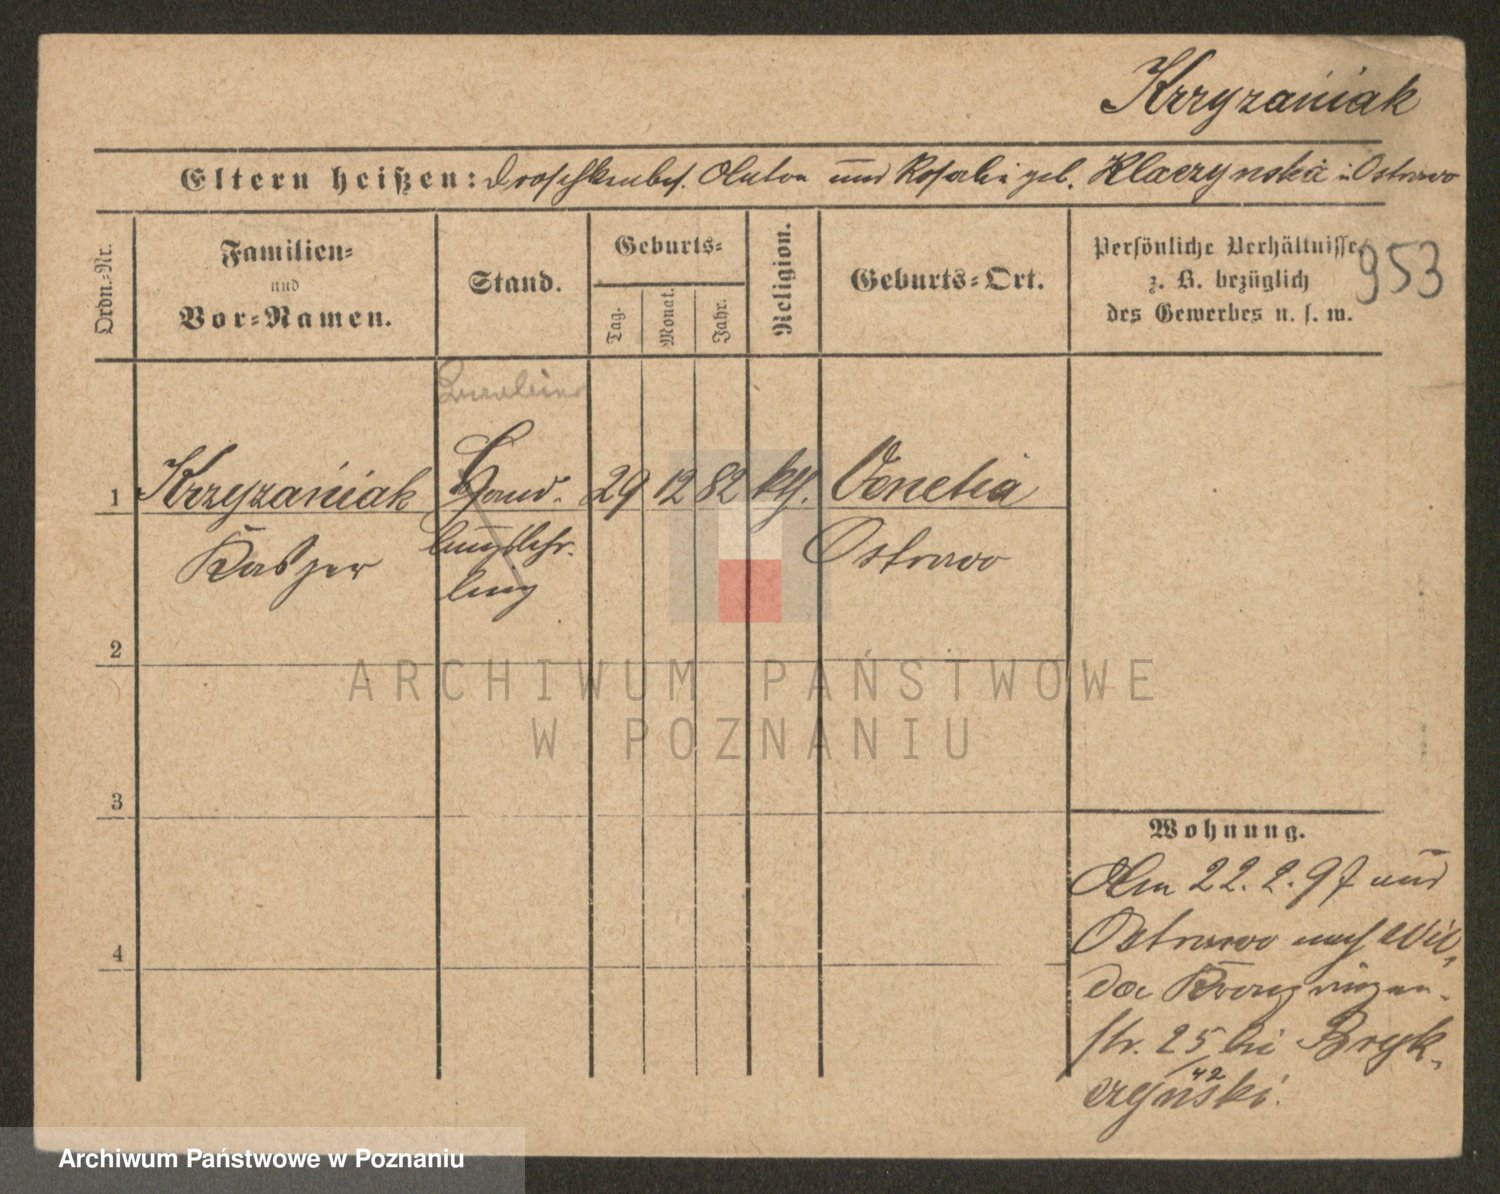 Krzyzaniak
Eltern heißen: Droschkenbes. Anton und Rosalie geb. Klaczynska in Ostrowo
Ordn.-Nr.
Familien-
und
Vor-Namen.
Stand.
Geburts-
Tag.
Monat.
Jahr.
Religion.
Geburts-Ort.
Persönliche Verhältnisse
z. B. bezüglich
des Gewerbes u. s. w.
953
1 Krzyzaniak Hand- 29 12 82 kth. Venetia
Kasper lungslehr- Ostrowo
ling
2
3
4
Wohnung.
Am 22.2.97 aus
Ostrowo nach Wil-
da Kronprinzen-
str. 25 bei Bryk-
42
czynski.
ARCHIWUM PAŃSTWOWE
W POZNANIU
Archiwum Państwowe w Poznaniu